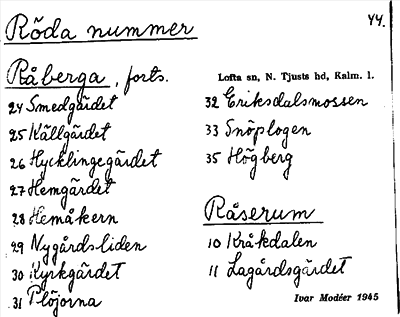 Röda nummer
44.
Råberga, forts.
24 Smedgärdet
25 Källgärdet
26 Hycklingegärdet
27 Hemgärdet
28 Hemåkern
29 Nygårdsliden
30 Kyrkgärdet
31 Plöjorna
Lofta sn, N. Tjusts hd, Kalm. l.
32 Eriksdalsmossen
33 Snöplogen
35 Högberg
Råserum
10 Kråkdalen
11 Lagårdsgärdet
Ivar Modéer 1945